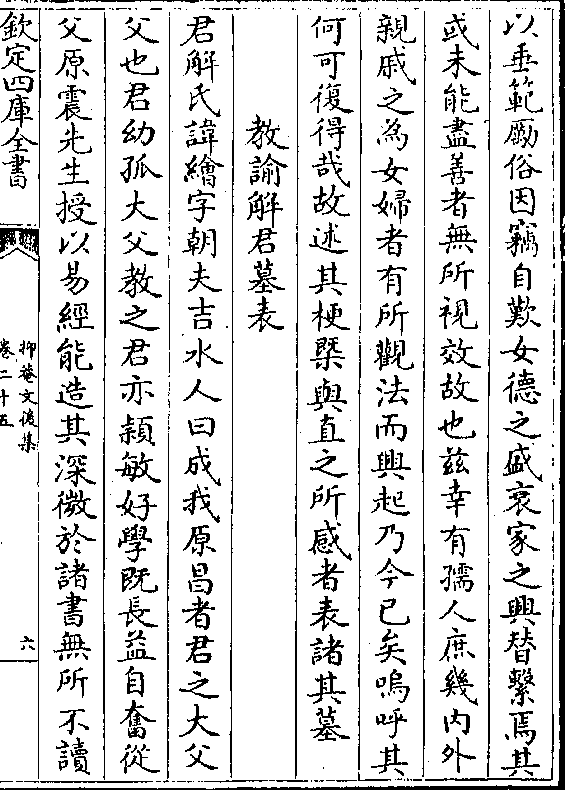 以垂範勵俗因竊自歎女德之盛衰家之興替繫焉其
或未能盡善者無所視效故也茲幸有孺人庶幾内外
親戚之為女婦者有所觀法而興起乃今已矣嗚呼其
何可復得哉故述其梗槩與直之所感者表諸其墓
教諭解君墓表
君解氏諱繪字朝夫吉水人曰成我原昌者君之大父
父也君幼孤大父教之君亦頴敏好學既長益自奮從
父原震先生授以易經能造其深微於諸書無所不讀
欽定四庫全書
抑菴文後集
卷二十五
六